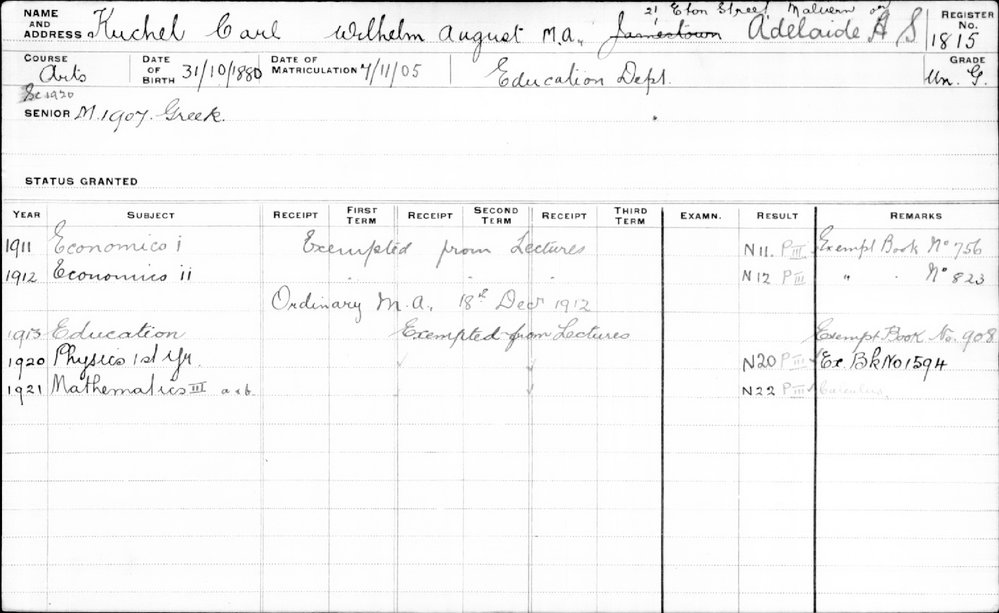 21 Eton Street Malvern
NAME AND ADDRESS Kuchel Carl Wilhelm August M.A., Jamestown Adelaide H S REGISTER No. 1815
COURSE Arts DATE OF BIRTH 31/10/1880 DATE OF MATRICULATION 7/11/05 Education Dept. GRADE Un. G.
Sc 1920
SENIOR M. 1907. Greek.
STATUS GRANTED
YEAR SUBJECT RECEIPT FIRST TERM RECEIPT SECOND TERM RECEIPT THIRD TERM EXAMN. RESULT REMARKS
1911 Economics i Exempted from Lectures N11. P III Exempt Book No 756
1912 Economics ii " " " N12 P III " " No 823
Ordinary M.A. 18th Decr 1912
1913 Education Exempted from Lectures Exempt Book No. 908
1920 Physics 1st Yr. ✓ ✓ N20 P III ✓ Ex. Bk No 1594
1921 Mathematics III a & b. ✓ ✓ N22 P III ✓